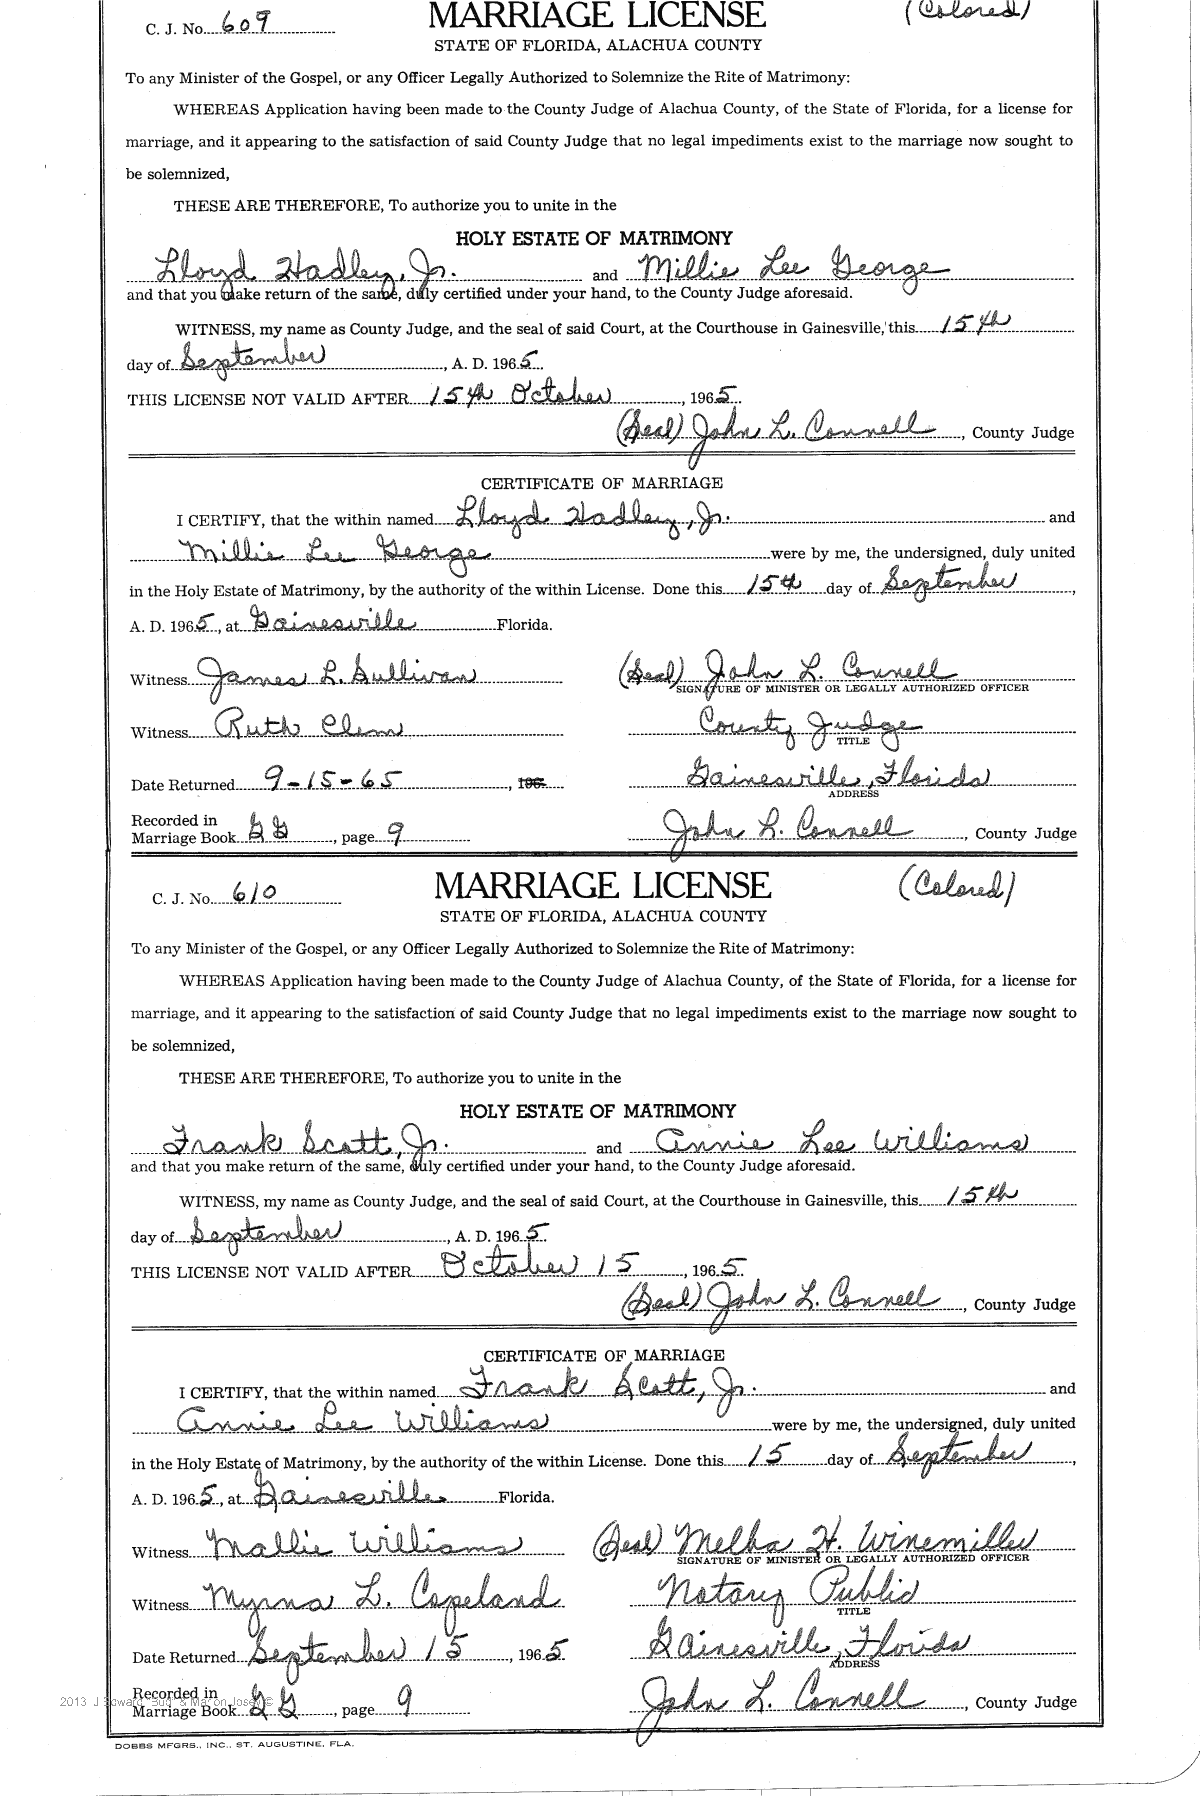 C. J. No. 609 MARRIAGE LICENSE (Colored)
STATE OF FLORIDA, ALACHUA COUNTY
To any Minister of the Gospel, or any Officer Legally Authorized to Solemnize the Rite of Matrimony:
WHEREAS Application having been made to the County Judge of Alachua County, of the State of Florida, for a license for
marriage, and it appearing to the satisfaction of said County Judge that no legal impediments exist to the marriage now sought to
be solemnized,
THESE ARE THEREFORE, To authorize you to unite in the
HOLY ESTATE OF MATRIMONY
Lloyd Hadley, Jr. and Millie Lee George
and that you make return of the same, duly certified under your hand, to the County Judge aforesaid.
WITNESS, my name as County Judge, and the seal of said Court, at the Courthouse in Gainesville, this 15th
day of September, A. D. 1965.
THIS LICENSE NOT VALID AFTER 15th October, 1965.
(Seal) John L. Connell, County Judge
CERTIFICATE OF MARRIAGE
I CERTIFY, that the within named Lloyd Hadley, Jr. and
Millie Lee George were by me, the undersigned, duly united
in the Holy Estate of Matrimony, by the authority of the within License. Done this 15th day of September,
A. D. 1965, at Gainesville Florida.
Witness James L. Sullivan (Seal) John L. Connell
SIGNATURE OF MINISTER OR LEGALLY AUTHORIZED OFFICER
Witness Ruth Clem County Judge
TITLE
Date Returned 9-15-65, 196 Gainesville, Florida
ADDRESS
Recorded in
Marriage Book GG, page 9 John L. Connell, County Judge
C. J. No. 610 MARRIAGE LICENSE (Colored)
STATE OF FLORIDA, ALACHUA COUNTY
To any Minister of the Gospel, or any Officer Legally Authorized to Solemnize the Rite of Matrimony:
WHEREAS Application having been made to the County Judge of Alachua County, of the State of Florida, for a license for
marriage, and it appearing to the satisfaction of said County Judge that no legal impediments exist to the marriage now sought to
be solemnized,
THESE ARE THEREFORE, To authorize you to unite in the
HOLY ESTATE OF MATRIMONY
Frank Scott, Jr. and Annie Lee Williams
and that you make return of the same, duly certified under your hand, to the County Judge aforesaid.
WITNESS, my name as County Judge, and the seal of said Court, at the Courthouse in Gainesville, this 15th
day of September, A. D. 1965.
THIS LICENSE NOT VALID AFTER October 15, 1965.
(Seal) John L. Connell, County Judge
CERTIFICATE OF MARRIAGE
I CERTIFY, that the within named Frank Scott, Jr. and
Annie Lee Williams were by me, the undersigned, duly united
in the Holy Estate of Matrimony, by the authority of the within License. Done this 15 day of September,
A. D. 1965, at Gainesville Florida.
Witness Mallie Williams (Seal) Melba H. Winemiller
SIGNATURE OF MINISTER OR LEGALLY AUTHORIZED OFFICER
Witness Myrna L. Copeland Notary Public
TITLE
Date Returned September 15, 1965. Gainesville, Florida
ADDRESS
Recorded in
2013 J Edward "Bud" & Marion Josey ©
Marriage Book GG, page 9 John L. Connell, County Judge
DOBBS MFGRS., INC., ST. AUGUSTINE, FLA.